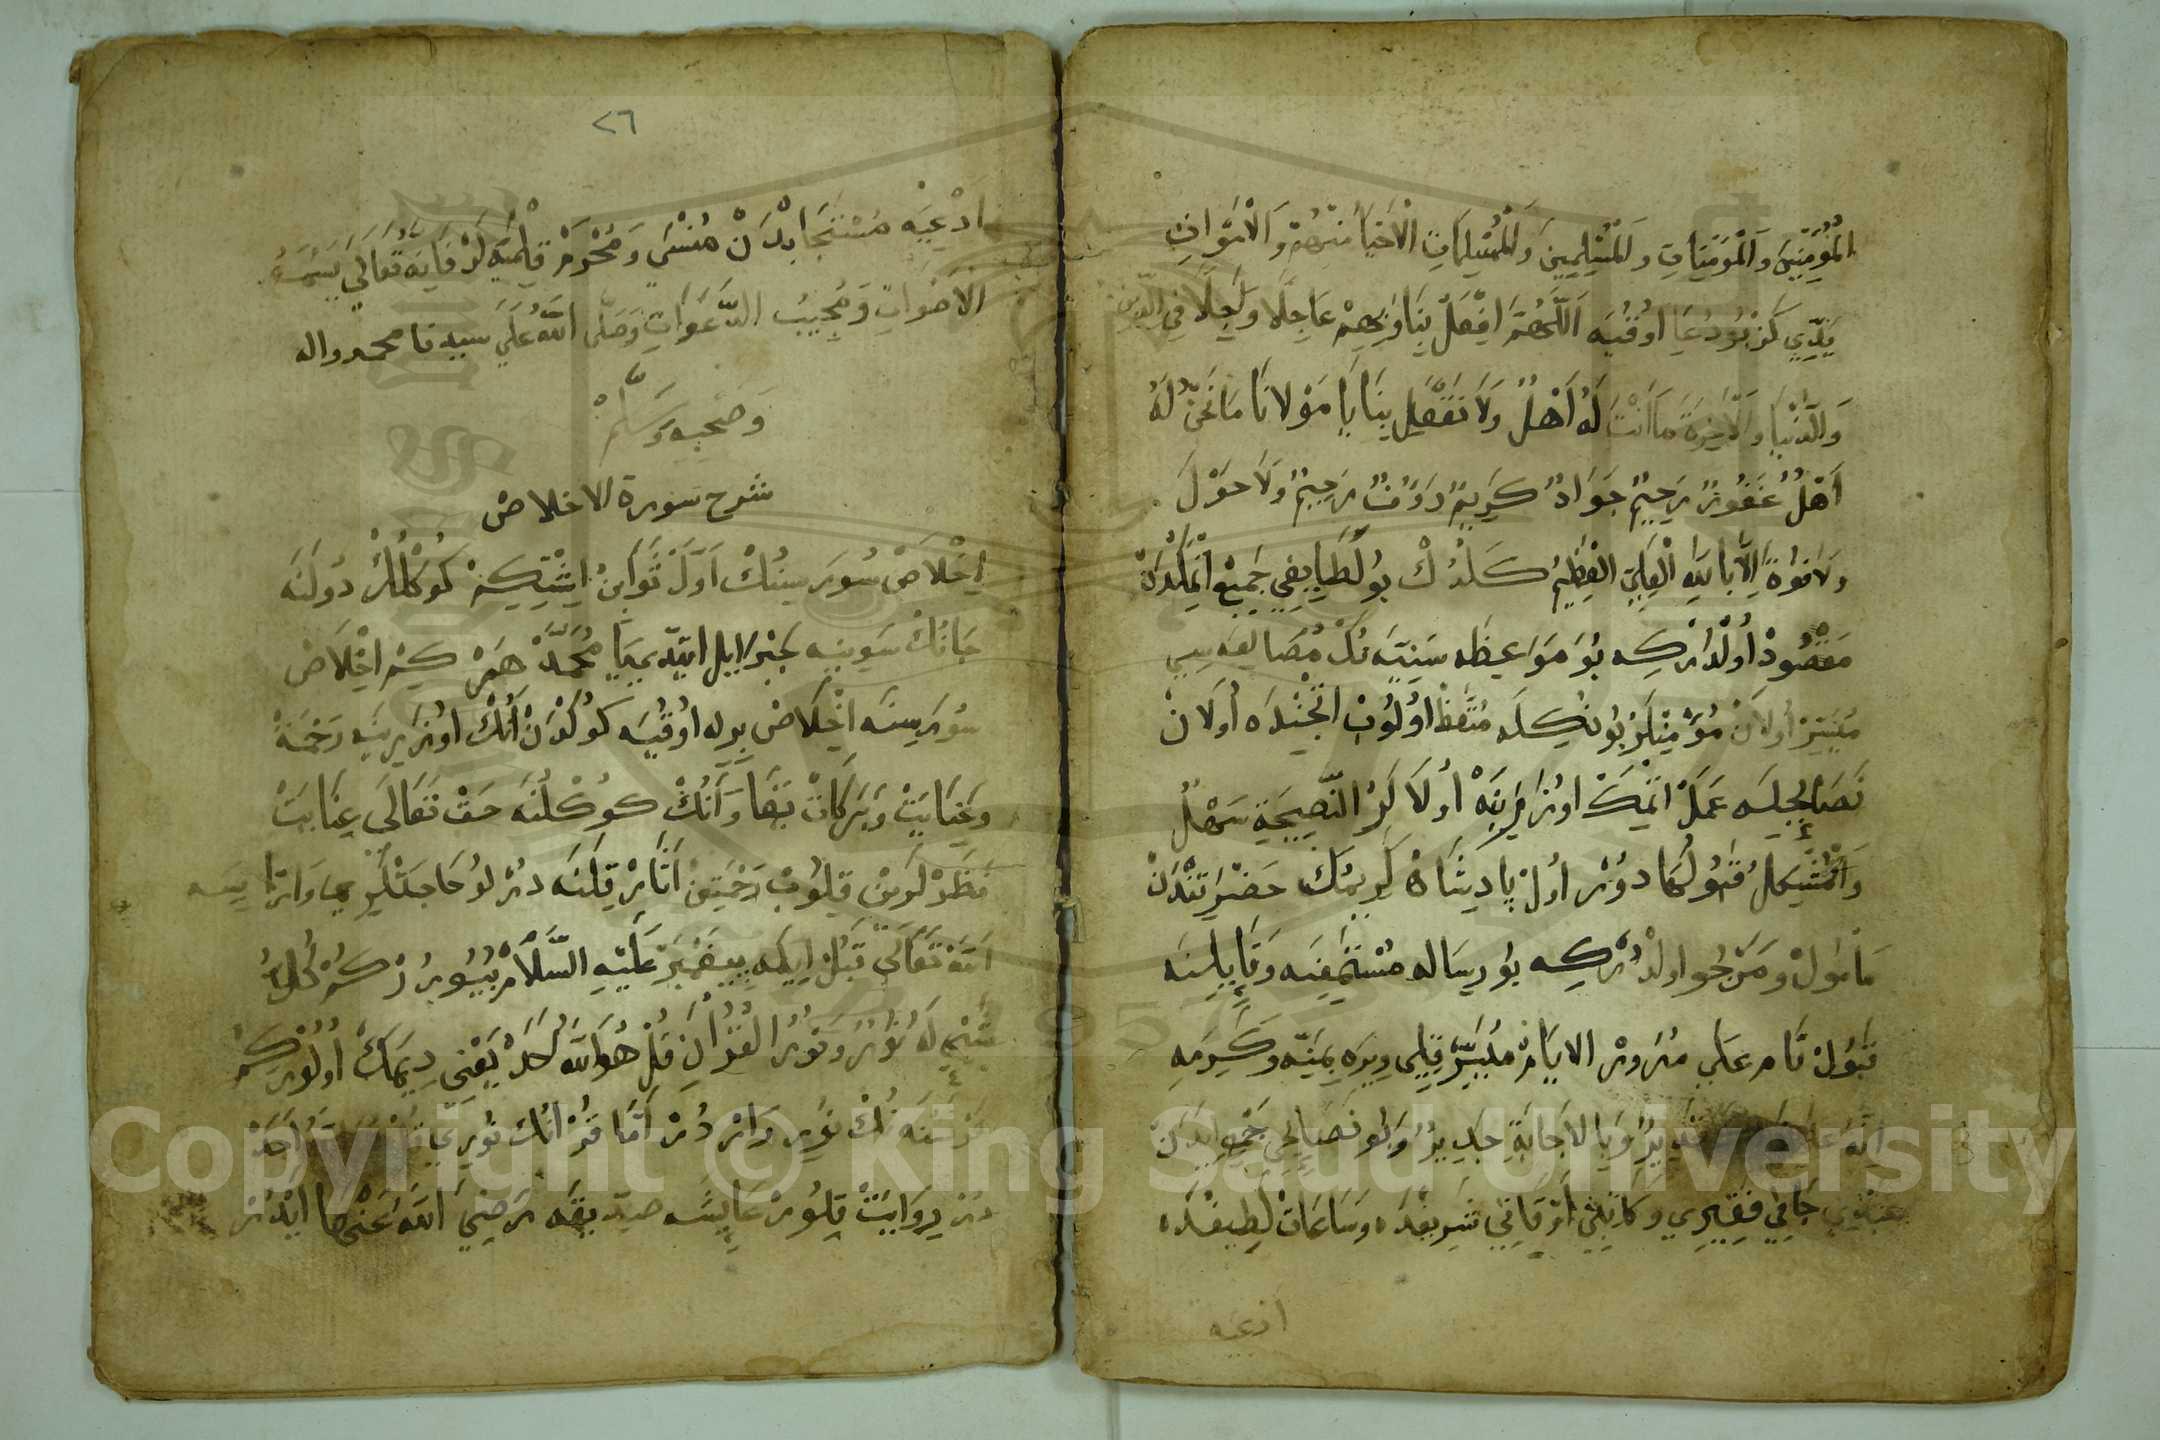 المؤمنين والمؤمنات والمسلمين والمسلمات الاحياء منهم والاموات
يدي كز بو دعا اوقيه اللهم افعل بنا وبهم عاجلا واجلا في الدين
والدنيا والاخرة ما انت له اهل ولا تفعل بنا يا مولانا ما نحن له
اهل غفور رحيم جواد كريم رؤف رحيم ولا حول
ولا قوة الا بالله العلي العظيم كلدك بو لطايفي جميع اتمكدن
مقصود اولدركه بو مواعظه سنيه نك
اولان مؤمنلر بونكله متعظ اولوب ايچنده اولان
نصايحله عمل اتمك اوزرينه اولالر النصيحة سهل
والمشكل قبولها در اول پادشاه كريمك حضرتندن
مأمول ومرجو اولدركه بو رساله مستمعنه وقايلنه
قبول تام علي مرور الايام ميسر قيلي ويره بمنه وكرمه
انه علي وبالاجابة جدير وبو نصايحي جمع ايدن
جاني فقيري وكاتبي اوقاتي شريفده وساعات لطيفده
ادعيه
٢٦
ادعيه مستجابدن منسي ومحروم قلميه لر فانه تعالي يسمع
الاصوات ومجيب الدعوات وصلى الله علي سيدنا محمد واله
وصحبه وسلم
شرح سورة الاخلاص
اخلاص سوره سينك اول ثوابن ايشتكم كوكللر دولنه
جانك سوينه جبرائيل ايتدي يا محمد هر كيم اخلاص
سوره سنه اخلاص بيله اوقيه كوكدن انك اوزرينه رحمة
وعنايت وبركات يغا وانك كوكلنه حق تعالى عنايت
نظرلرين قيلوب رحمتن اثار قيلنه در لو حاجتلري وارايسه
الله تعالى قبول ايليه پيغمبر عليه السلام بيورر
شيء له نور ونور القرآن قل هو الله احد يعني ديمك اولور كم
نك نوري واردر اما قرآنك نوري احد
در روايت قلور عايشه صديقه رضي الله عنها ايدر